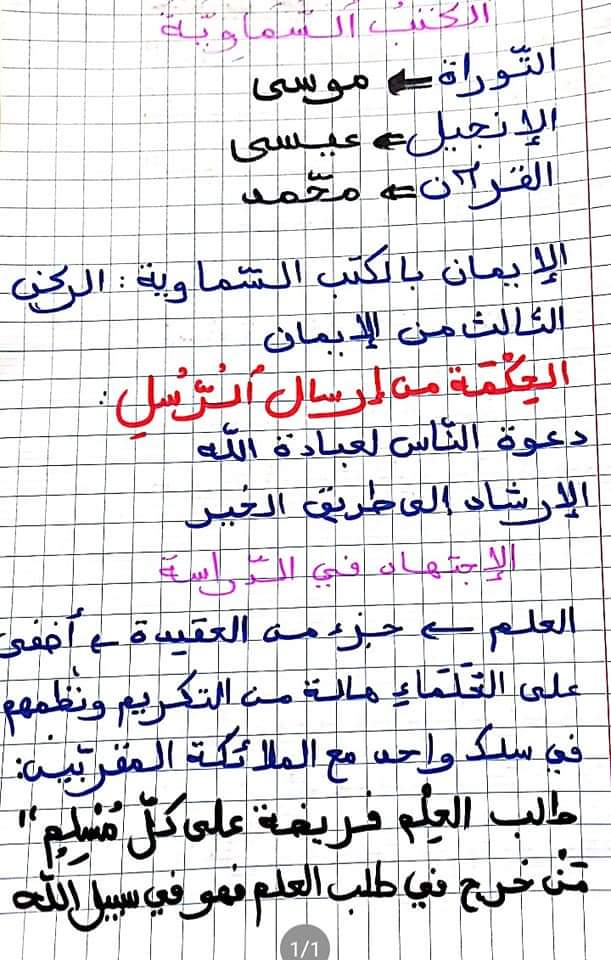 الكتب السّماويّة
التّوراة ← موسى
الإنجيل ← عيسى
القرآن ← محمّد
الإيمان بالكتب السّماوية : الركن
الثالث من الإيمان
الحِكْمَة من إرسال الرُّسُلِ :
دعوة النّاس لعبادة اللّه
الإرشاد إلى طريق الخير
الإجتهاد في الدّراسة
العلم ← جزء من العقيدة ← أضفى
على العُلَمَاءِ هالة من التكريم ونظمهم
في سلك واحد مع الملائكة المقرّبين:
طالب العِلْم فريضة على كلّ مُسْلِمٍ"
مَنْ خرج في طلب العلم فهو في سبيل اللّه
1/1